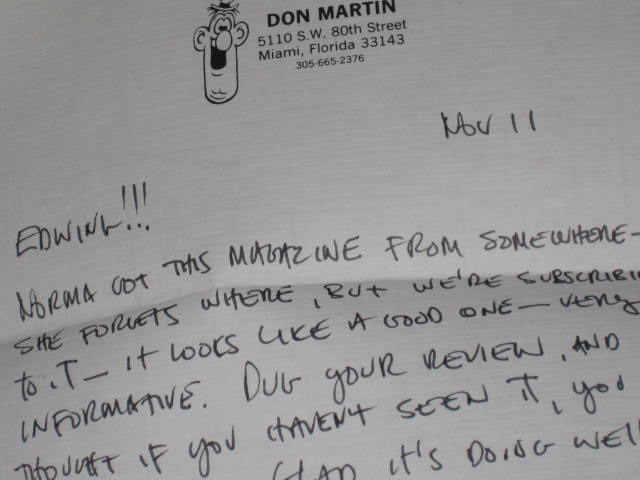 DON MARTIN
5110 S.W. 80th Street
Miami, Florida 33143
305-665-2376
NOV 11
EDWING!!!
NORMA GOT THIS MAGAZINE FROM SOMEWHERE—
SHE FORGETS WHERE, BUT WE'RE SUBSCRIBIN
to IT — IT LOOKS LIKE A GOOD ONE — VERY
INFORMATIVE. DUG YOUR REVIEW, AND
THOUGHT IF YOU HAVEN'T SEEN IT, YOU
GLAD IT'S DOING WELL